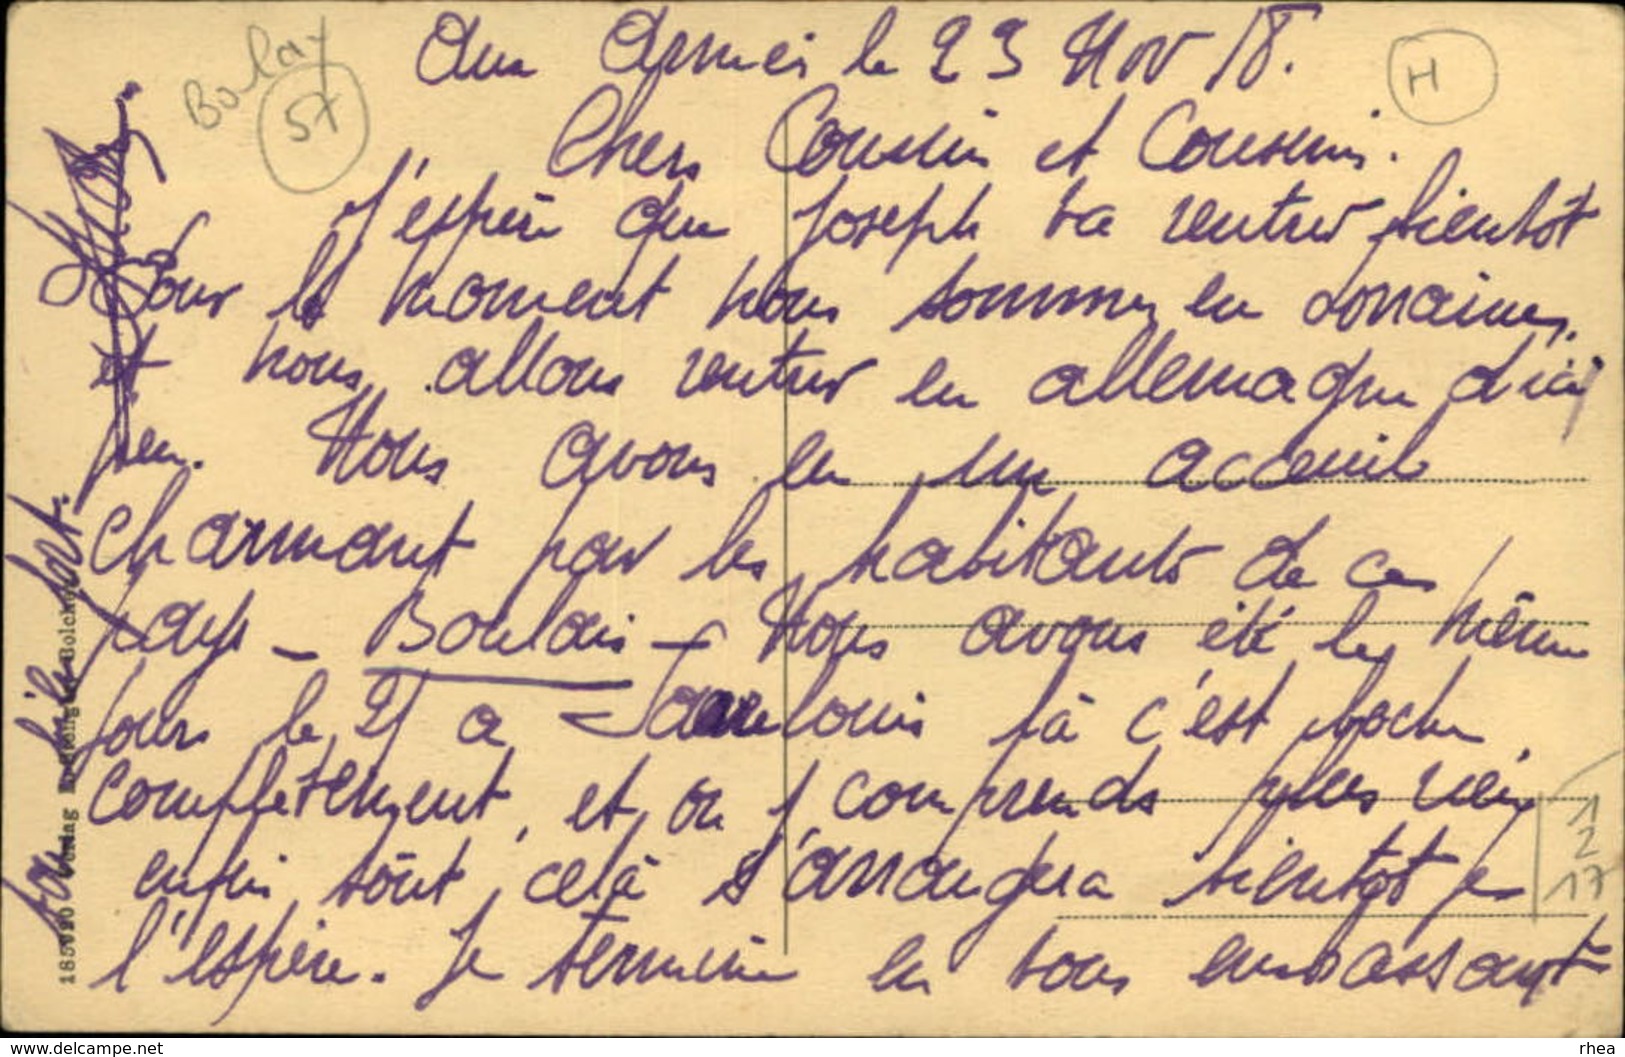 Boulay
57
H
Aux Armées le 23 Nov 18.
Chers Cousin et Cousine.
J'espère que Joseph va rentrer bientôt
Pour le moment nous sommes en Lorraine,
et nous allons rentrer en allemagne d'ici
peu. Nous avons eu un acceuil
charmant par les habitants de ces
pays _ Boulais _ Nous avons été les même
jours le 21 a Saarelouis là c'est boche
complètement, et on y comprends plus rien
enfin tout celà s'arrangera bientôt je
l'espère. Je termine en vous embrassant
bien fort.
185020 Verlag
Bolchen
1
2
17
www.delcampe.net
rhea